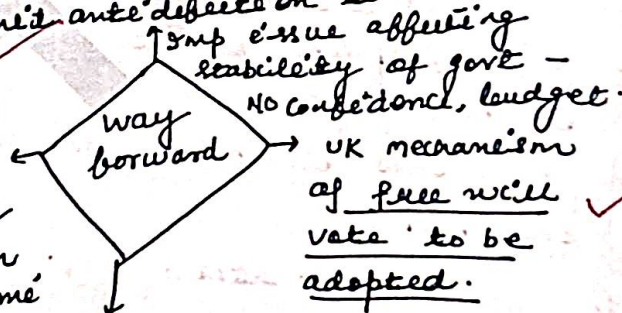 ante defection
Imp issue affecting
stability of govt -
No confidence, budget.
way
forward.
UK mechanism
of free will
vote to be
adopted.